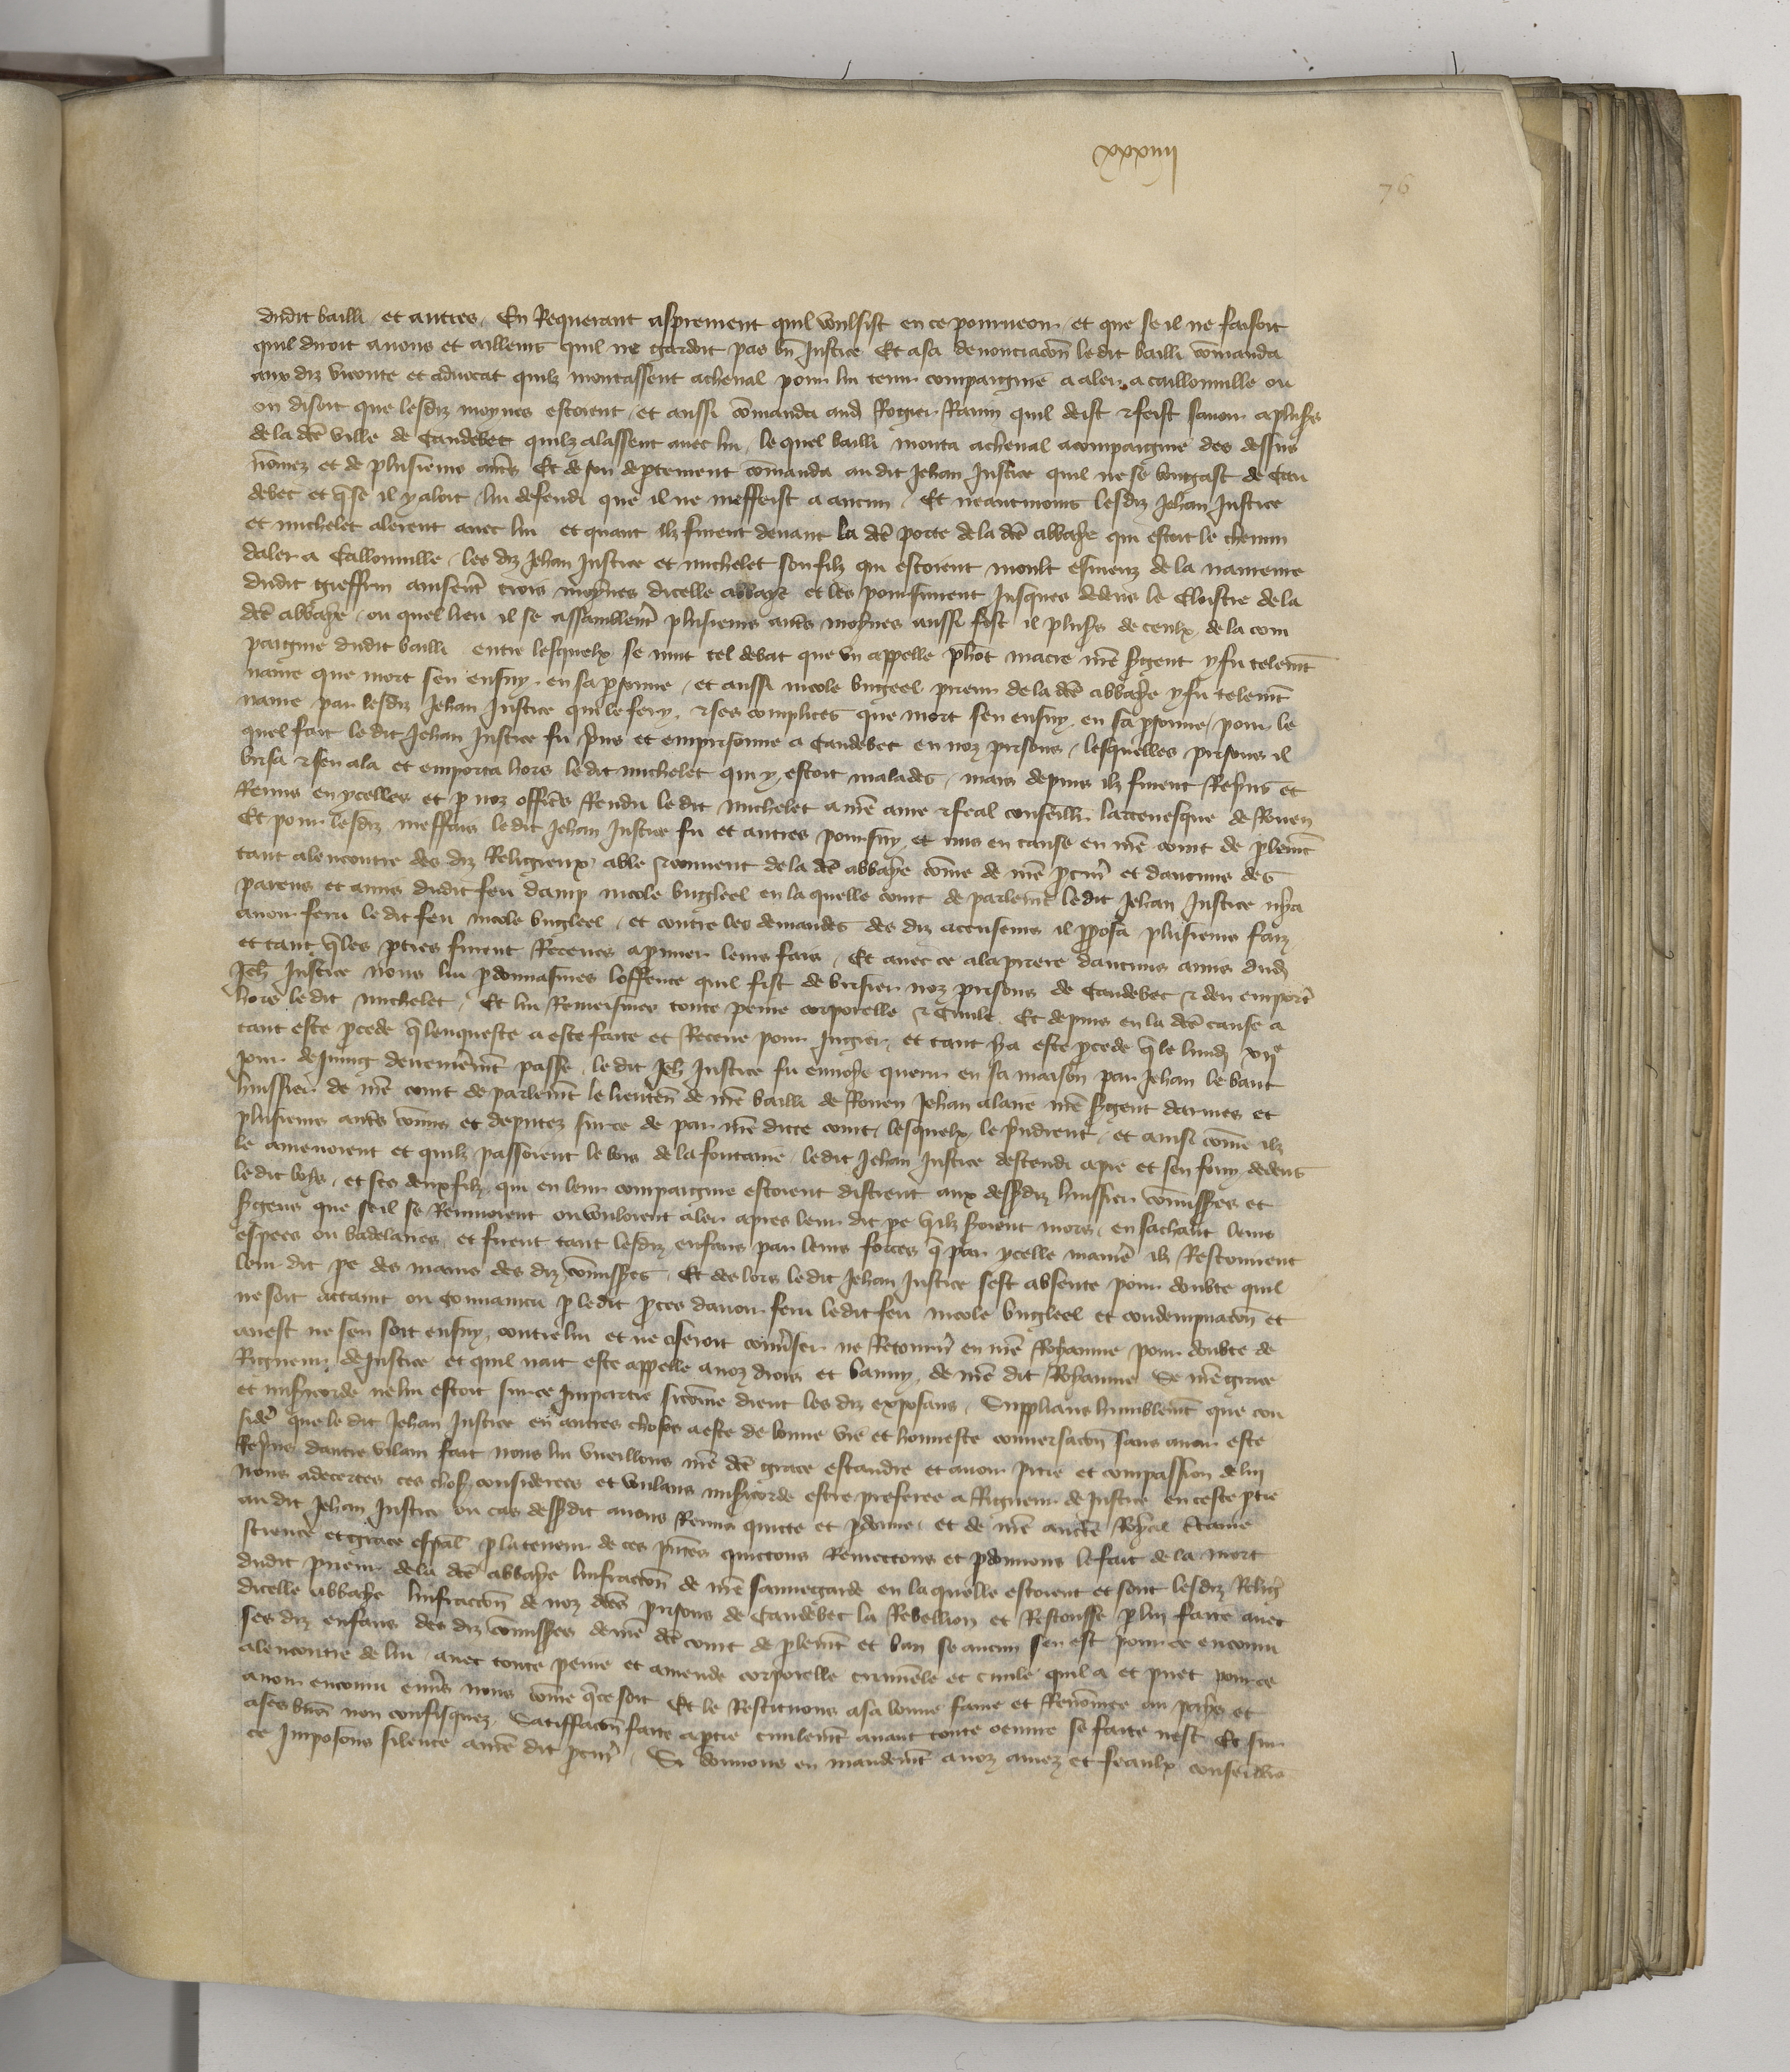 xxxiiij
76
dudit bailli et autres. En Requerant asprement quil voulsist en ce pourveoir et que se il ne faisoit
quil diroit a nous et ailleurs quil ne gardoit pas bn̄ Justice Et a sa denonciacōn le dit bailli cōmanda
aux diz viconte et advocat quilz montassent a cheval pour lui tenir compaignie a aler a caillouville ou
on disoit que lesdiz moynes estoient et aussi cōmanda aud Rogier quil deist & feist savoir a plus̉s
de la dcē ville de Caudebec quilz alassent avec lui le quel bailli monta a cheval acompaignie des dessus
nōmez et de plusieurs aut̉s Et de son deptement cōmanda au dit Jehan Justice quil ne se bougast de Cau
debec et q̄ se il y aloit lui defendi que il ne meffeist a aucun. Et neantmoins lesdiz Jehan Justice
et michelet alerent avec lui et quant ilz furent devant la dcē porte de la dcē abbaye qui estoit le chemin
daler a Callouville les diz Jehan Justice et michelet son filz qui estoient moult esmeuz de la navreure
dudit greffin aviser̉t trois moynes dicelle abbaye et les poursuirent Jusques dedens le Cloistre de la
dcē abbaye ou quel lieu il se assambler̉t plusieurs aut̉s moynes aussi fist il plus̉s de ceulx de la com
paignie dudit bailli entre lesquelx se mut tel debat que un appelle phōt macie nrē s̉gent y fu telem̄t
navre que mort sen ensuy en sa p̱sonne et aussi nicole bugleel prieur de la dcē abbaye y fu telem̄t
navre par lesdiz Jehan Justice qui le fery & ses complices que mort sen ensuy en sa p̱sonne pour le
quel fait le dit Jehan Justice fu p̉ns et emprisonne a Caudebec en noz prisons lesquelles prisons il
brisa & sen ala et emporta hors le dit michelet qui y estoit malades mais depuis ilz furent Rep̉ns et
Remis en ycelles et p̱ noz officēs Rendu le dit michelet a nrē ame & feal conseill̉ larcevesque de Rouen
Et pour lesdiz meffais le dit Jehan Justice fu et autres poursuy et mis en cause en nrē court de p̱lem̄t
tant alencontre des diz Religieux abbe & convent de la dcē abbaye cōme de nrē p̱cur̉ et daucuns des
parens et amis dudit feu damp nicole bugleel en la quelle court de parlem̄t le dit Jehan Justice nya
avoir feru le dit feu nicole bugleel et contre les demandes des diz accuseurs il p̱posa plusieurs faiz
et tant q̄ les p̱ties furent Receues a prouver leurs fais. Et avec ce a la priere daucuns amis dud
Jeh̄ Justice nous lui p̱donnasmes loffence quil fist de brisier noz prisons de Caudebec & den emport̉
hors le dit michelet. Et lui Remeismes toute peine corporelle & Civile. Et depuis en la dcē cause a
tant este p̱cede q̄ lenqueste a este faite et Receue pour Jugier et tant y a este p̱cede q̄ le lundj xvij e
jour de Juing derrenierem̄t passe le dit Jeh̄ Justice fu envoye querir en sa maison par Jehan le bant
huissier de nrē court de parlem̄t le lieuten̄ de nrē bailli de Rouen Jehan alane nrē s̉gent darmes et
plusieurs aut̉s cōmis et deputez sur ce de par nrē dicte court lesquelx le p̉ndrent et ainsi cōme ilz
le amenoient et quilz passoient le bois de la fontaine le dit Jehan Justice descendi a pie et sen fouy dedens
le dit boys et ses deux filz qui en leur compaignie estoient distrent aux dess̉diz huissier cōmiss̉es et
s̉gens que se il se Remuoient ou vouloient aler apres leur dit pe q̉ ilz s̉roient mors en sachant leurs
espees ou badelaires et firent tant lesdiz enfans par leurs forces q̄ par ycelle manier̉ ilz Rescouirent
leur dit pe des mains des diz cōmiss̉es Et des lors le dit Jehan Justice sest absente pour doubte quil
ne soit attaint ou convaincu p̱ le dit p̱ces davoir feru le dit feu nicole bugleel et condempnacōn et
arrest ne sen soit ensuy contre lui et ne oseroit conv̉ser ne Retourn̉ en nrē Royaume pour doubte de
Rigueur de Justice et quil nait este appelle a noz drois et banny de nrē dit Royaume Se nrē grace
et mis̉icorde ne lui estoit sur ce Impartie sicōme dient les diz exposans. Supplians humblem̄t que con
sider̉ que le dit Jehan Justice en autres choses a este de bonne vie et honneste conversacōn sans avoir este
Rep̉ns dautre vilain fait nous lui vueillons nrē dcē grace estandre et avoir pitie et compassion de lui
nous adecertes ces chos̉ considerees et voulans mis̉icorde estre preferee a Rigueur de Justice en ceste p̱tie
au dit Jehan Justice ou cas dess̉dit avons Remis quitte et p̱donne et de nrē auctē Royal c̉taine
science et grace esp̄al p̱ la teneur de ces p̉ntes quittons Remettons et p̱donnons le fait de la mort
dudit prieur de la dcē abbaye linfraccōn de nrē sauvegarde en la quelle estoient et sont lesdiz Relig̉
dicelle abbaye linfraccōn de noz dcēs prisons de Caudebec la Rebellion et Rescousse p̱ lui faite avec
ses diz enfans des diz cōmiss̉es de nrē dcē court de p̱lem̄t et ban se aucun sen est pour ce encouru
alencontre de lui avec toute peine et amende corporelle criminele et civile quil a et puet pour ce
avoir encouru env̉s nous cōme q̄ ce soit Et le Restituons a sa bonne fame et Renōmee au pays et
a ses biēs non confisquez. Satiffacōn faite a p̱tie civilem̄t avant toute oeuvre se faite nest Et sur
ce Imposons silence a nrē dit p̱cur̉. Si donnons en mandem̄t a noz amez et feaulx conseillers